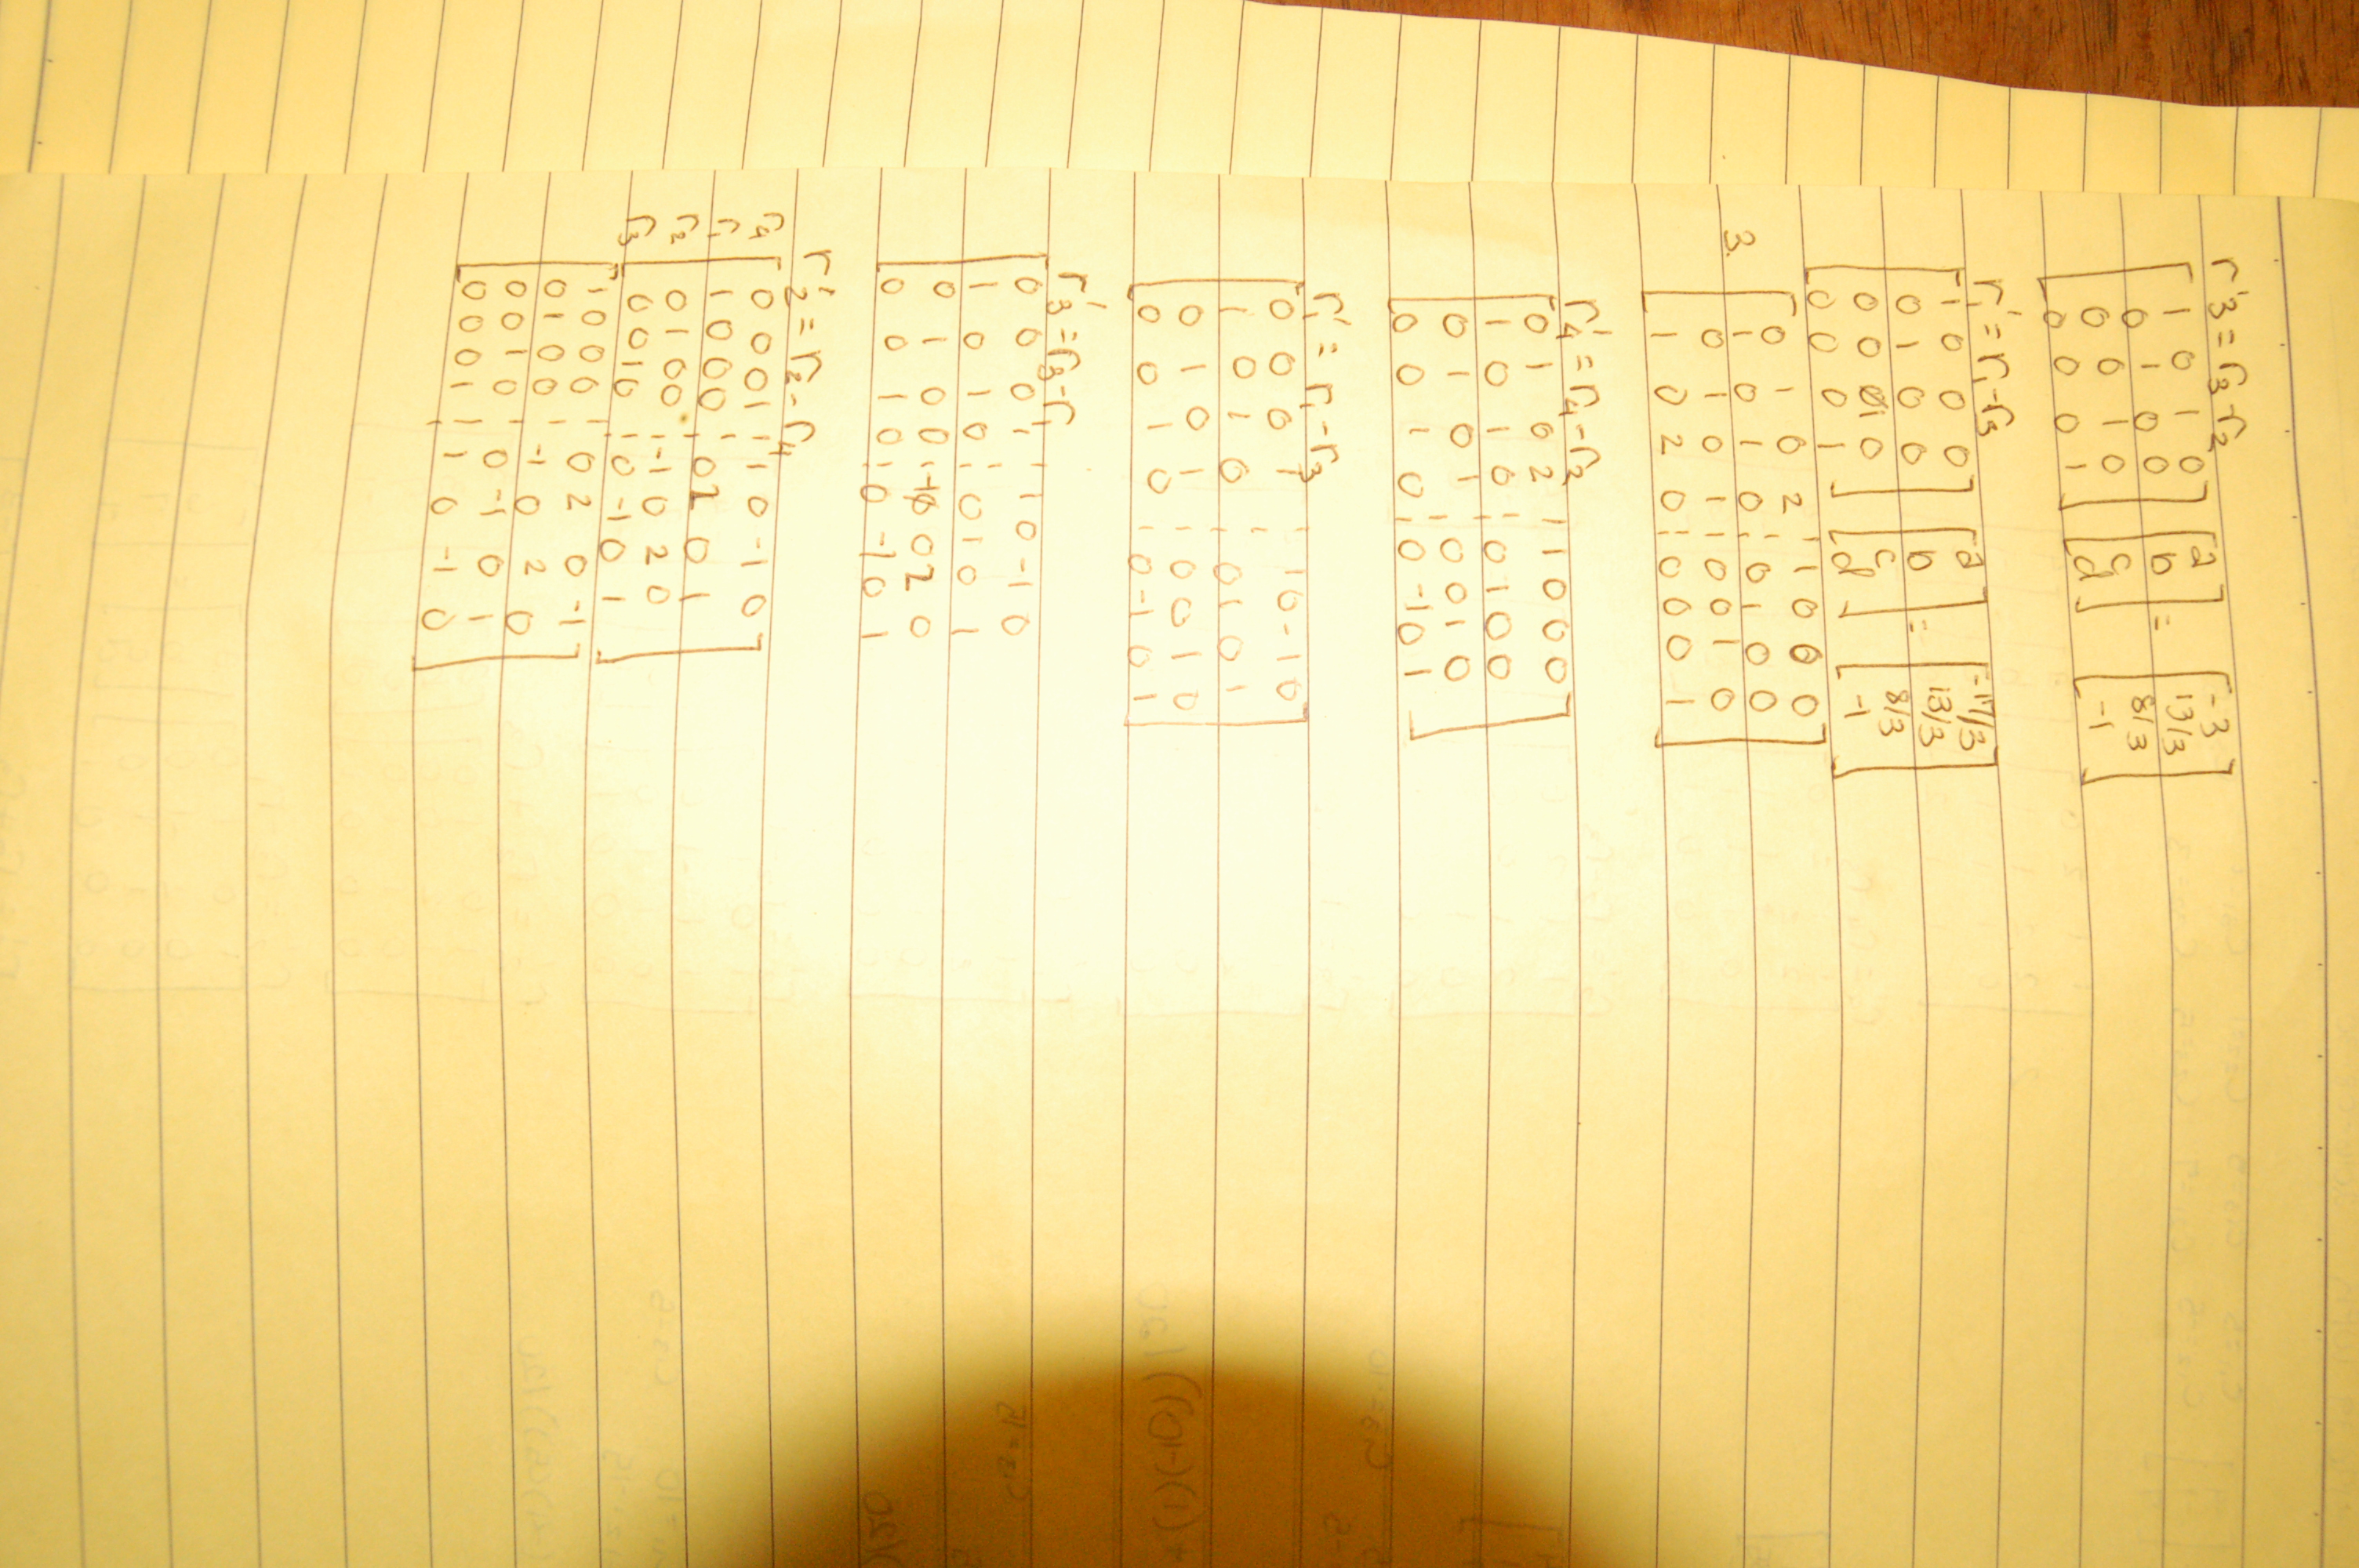 r'3 = r3-r2
1 0 1 0 a -3
0 1 0 0 b = 13/3
0 0 1 0 c 8/3
0 0 0 1 d -1
r'1 = r1-r3
1 0 0 0 a -17/3
0 1 0 0 b = 13/3
0 0 1 0 c 8/3
0 0 0 1 d -1
0 1 0 2 | 1 0 0 0
3. 1 0 1 0 | 0 1 0 0
0 1 0 1 | 0 0 1 0
1 0 2 0 | 0 0 0 1
r'4 = r4-r2
0 1 0 2 | 1 0 0 0
1 0 1 0 | 0 1 0 0
0 1 0 1 | 0 0 1 0
0 0 1 0 | 0 -1 0 1
r'1 = r1-r3
0 0 0 1 | 1 0 -1 0
1 0 1 0 | 0 1 0 1
0 1 0 1 | 0 0 1 0
0 0 1 0 | 0 -1 0 1
r'3 = r3-r1
0 0 0 1 | 1 0 -1 0
1 0 1 0 | 0 1 0 1
0 1 0 0 | -1 0 2 0
0 0 1 0 | 0 -1 0 1
r'2 = r2-r4
r4 0 0 0 1 | 1 0 -1 0
r1 1 0 0 0 | 0 2 0 1
r2 0 1 0 0 | -1 0 2 0
r3 0 0 1 0 | 0 -1 0 1
1 0 0 0 | 0 2 0 -1
0 1 0 0 | -1 0 2 0
0 0 1 0 | 0 -1 0 1
0 0 0 1 | 1 0 -1 0